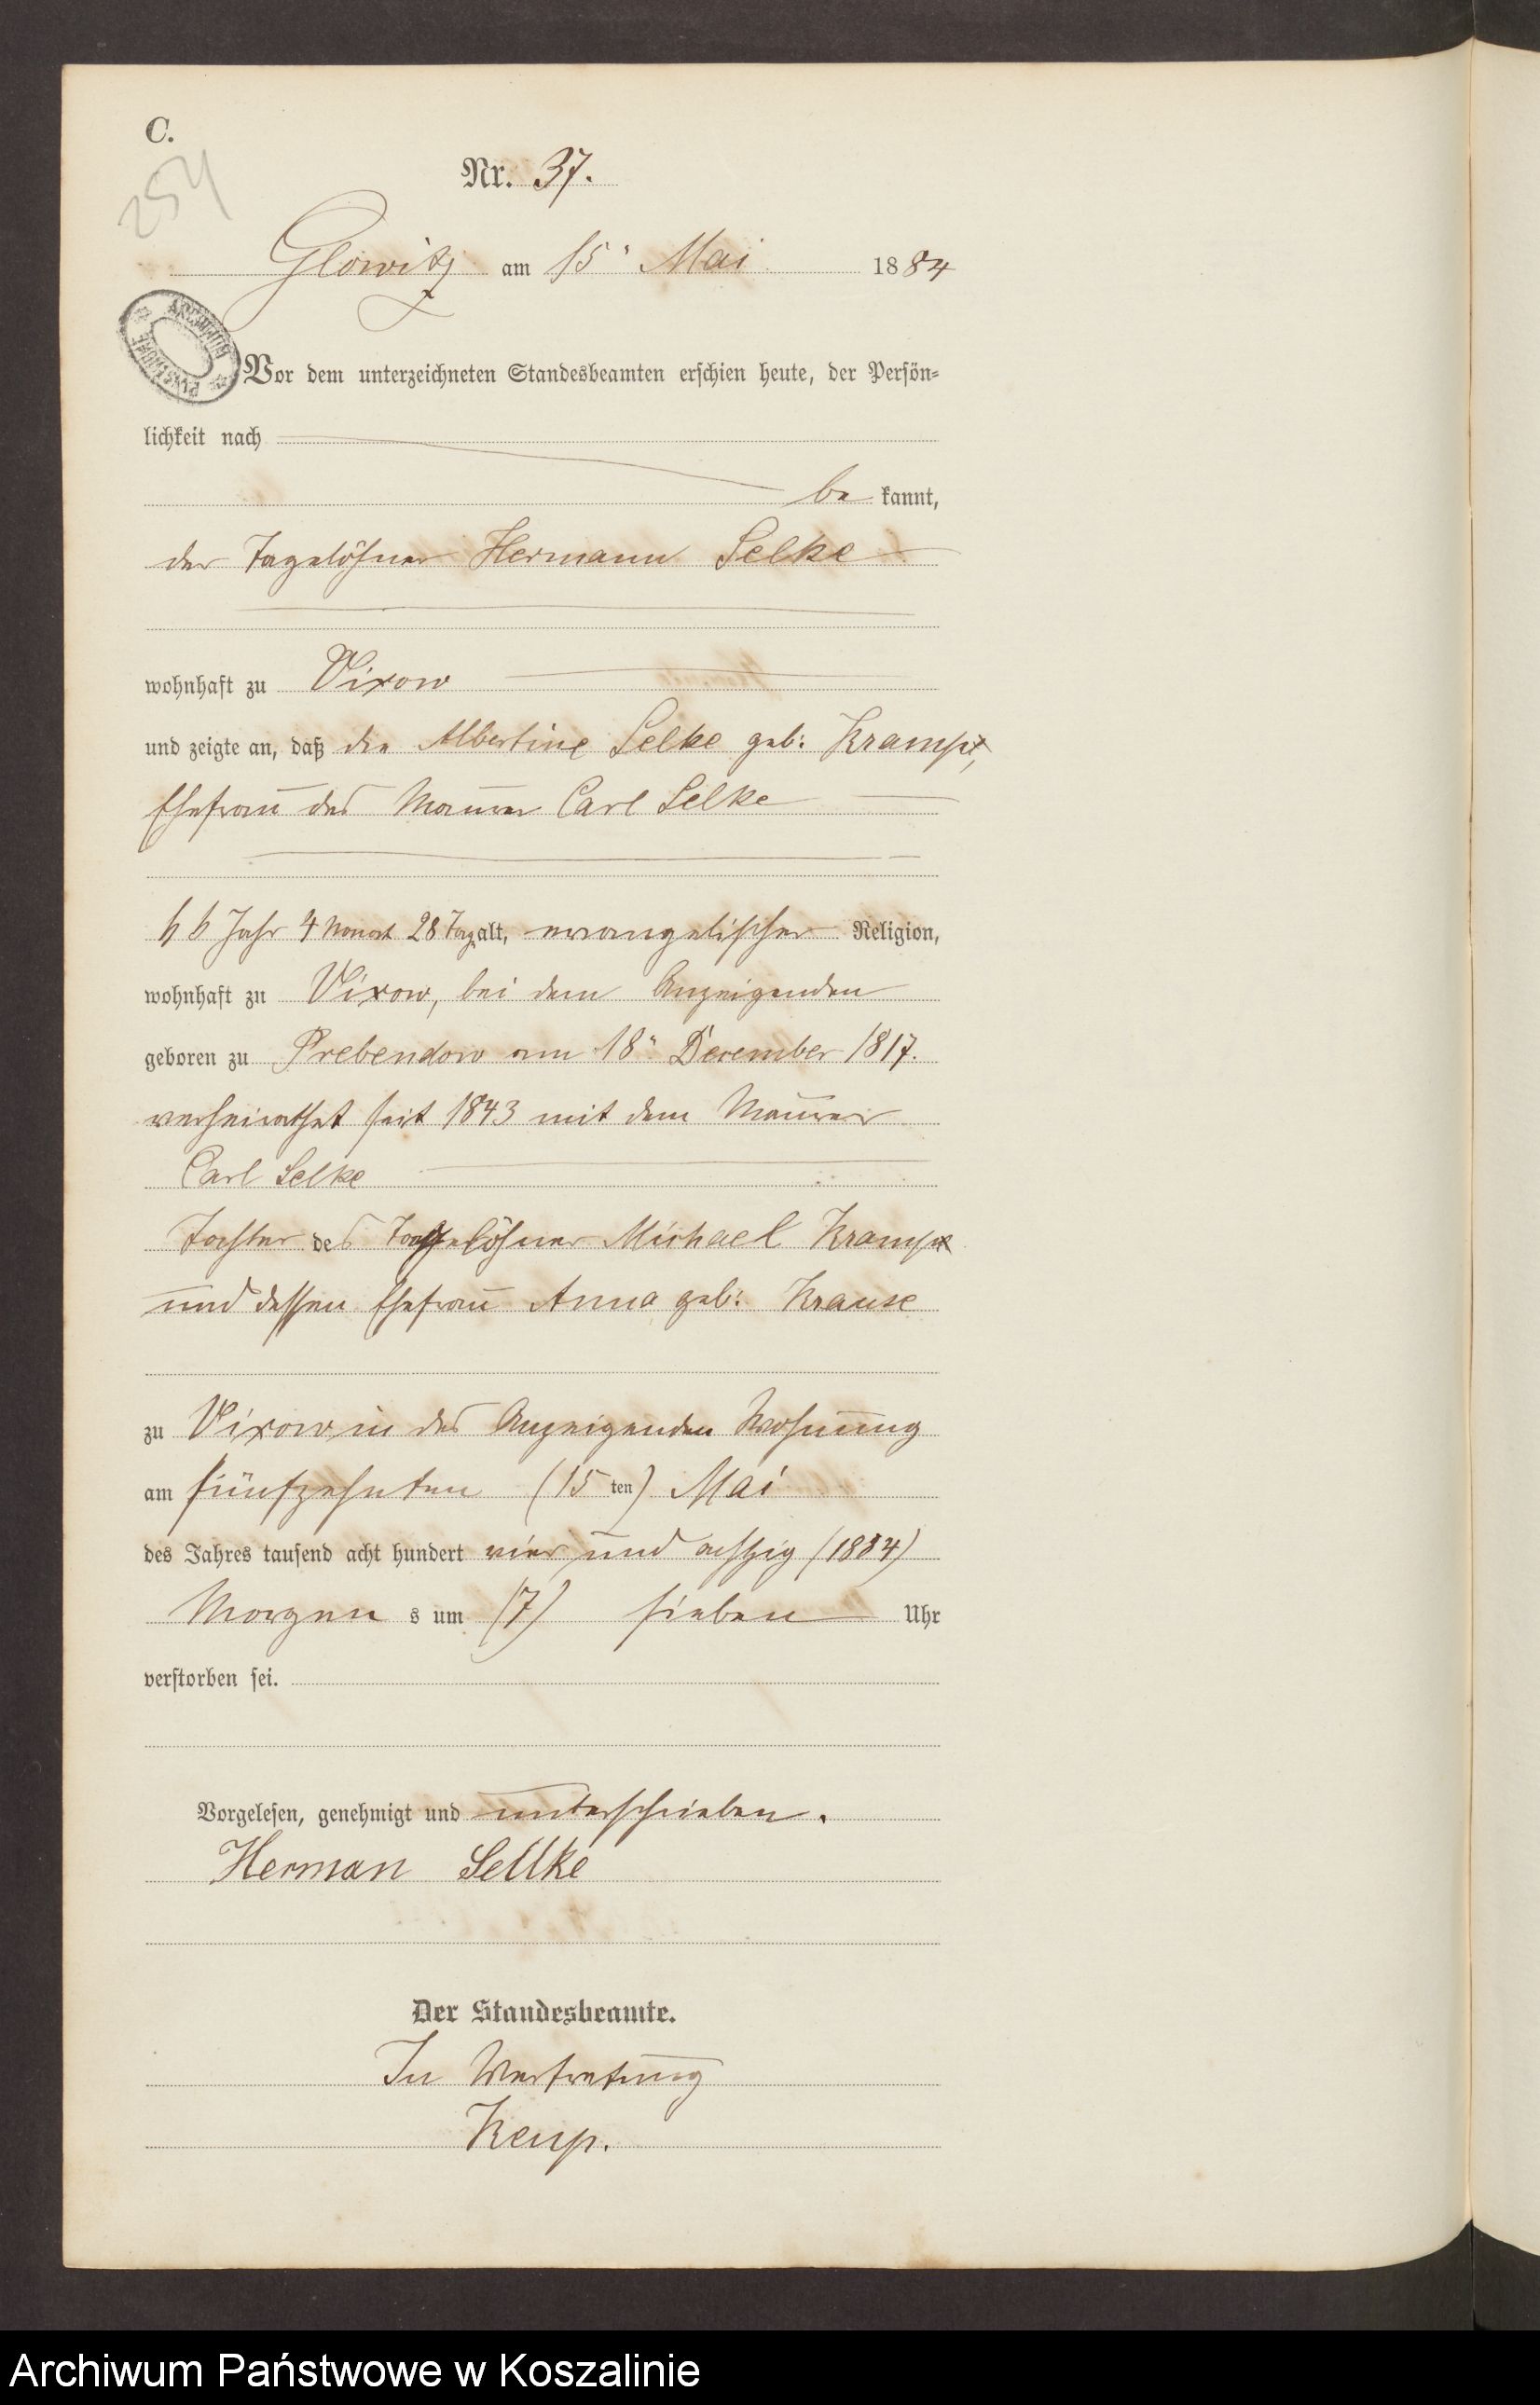 C.
254
Nr. 37.
Glowitz am 15" Mai 1884
ARCHIWUM PAŃSTWOWE
Vor dem unterzeichneten Standesbeamten erschien heute, der Persön-
lichkeit nach
be kannt,
der Tagelöhner Hermann Selke
wohnhaft zu Vixow
und zeigte an, daß die Albertine Selke geb: Krampx,
Ehefrau des Maurer Carl Selke
66 Jahr 4 Monat 28 Tag alt, evangelischer Religion,
wohnhaft zu Vixow, bei dem Anzeigenden
geboren zu Prebendow am 18" December 1817.
verheirathet seit 1843 mit dem Maurer
Carl Selke
Tochter des Tagelöhner Michael Krampx
und dessen Ehefrau Anna geb: Krause
zu Vixow in des Anzeigenden Wohnung
am fünfzehnten (15 ten) Mai
des Jahres tausend acht hundert vier und achtzig (1884)
Morgen s um (7) sieben Uhr
verstorben sei.
Vorgelesen, genehmigt und unterschrieben.
Herman Sellke
Der Standesbeamte.
In Vertretung
Kemp.
Archiwum Państwowe w Koszalinie